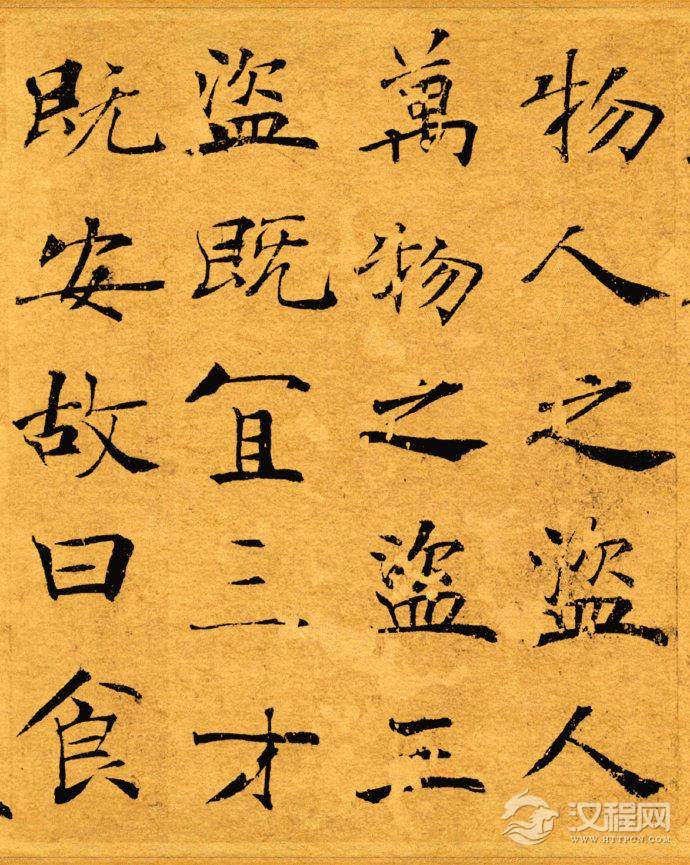 物人之盜人
萬物之盜三
盜既冝三才
既安故曰食
汉程网
WWW.HTTPCN.COM